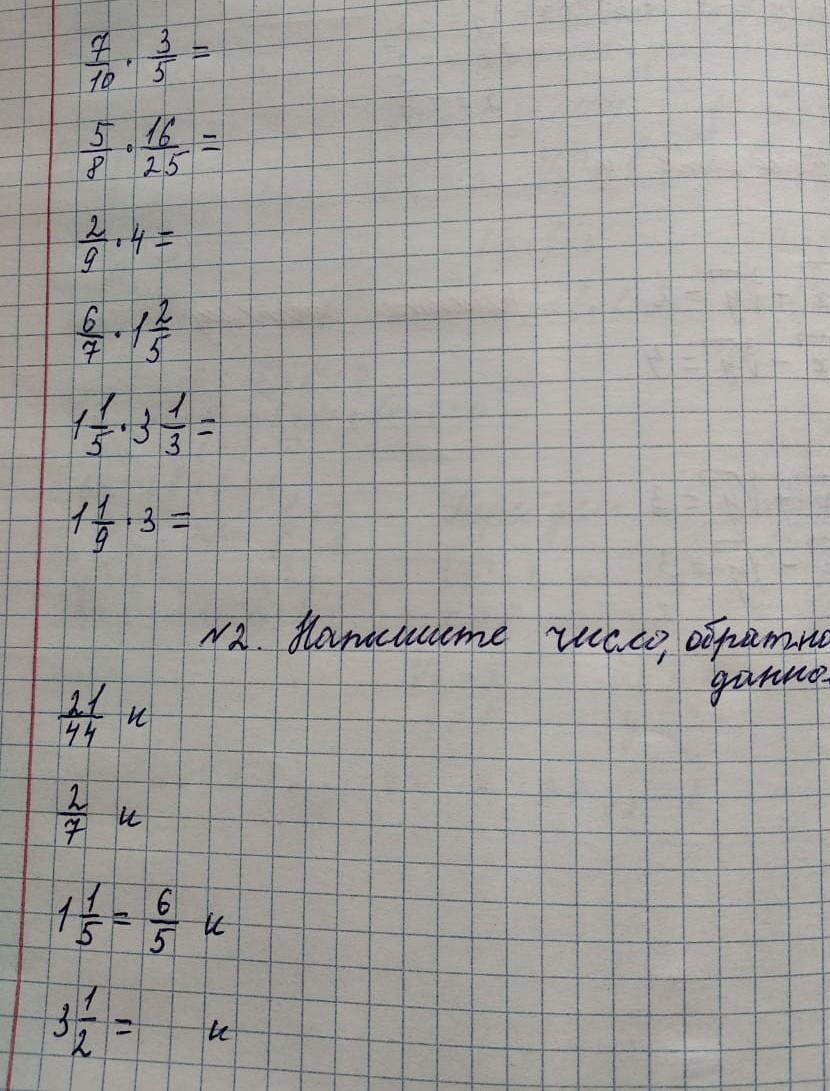 7/10 · 3/5 =
5/8 · 16/25 =
2/9 · 4 =
6/7 · 1 2/5
1 1/5 · 3 1/3 =
1 1/9 · 3 =
№2. Напишите число, обратно
данно
21/44 и
2/7 и
1 1/5 = 6/5 и
3 1/2 = и